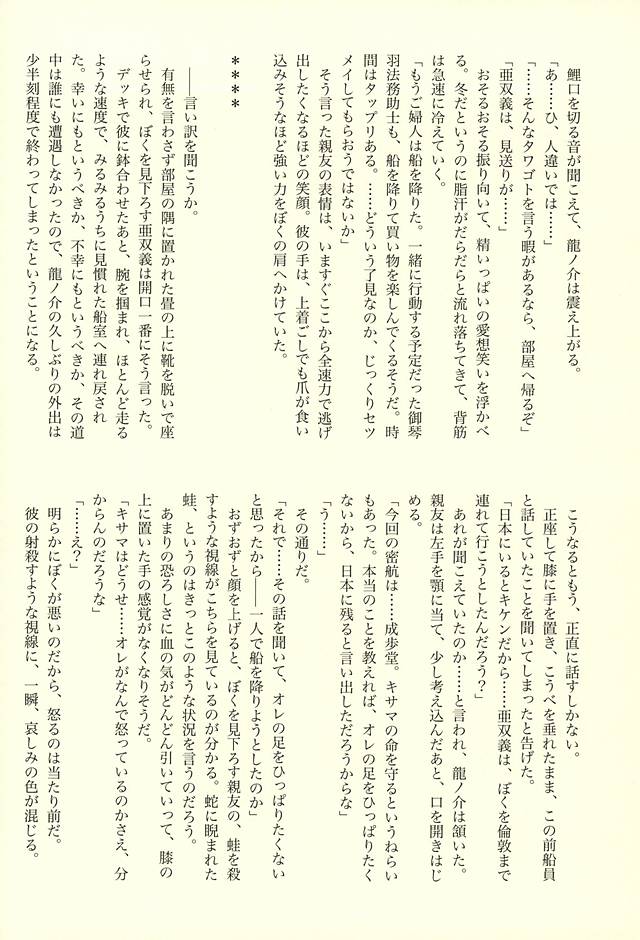 鯉口を切る音が聞こえて、龍ノ介は震え上がる。
「あ……ひ、人違いでは……」
「……そんなタワゴトを言う暇があるなら、部屋へ帰るぞ」
「亜双義は、見送りが……」
おそるおそる振り向いて、精いっぱいの愛想笑いを浮かべ
る。冬だというのに脂汗がだらだらと流れ落ちてきて、背筋
は急速に冷えていく。
「もうご婦人は船を降りた。一緒に行動する予定だった御琴
羽法務助士も、船を降りて買い物を楽しんでくるそうだ。時
間はタップリある。……どういう了見なのか、じっくりセツ
メイしてもらおうではないか」
そう言った親友の表情は、いますぐここから全速力で逃げ
出したくなるほどの笑顔。彼の手は、上着ごしでも爪が食い
込みそうなほど強い力をぼくの肩へかけていた。
＊＊＊＊
――言い訳を聞こうか。
有無を言わさず部屋の隅に置かれた畳の上に靴を脱いで座
らせられ、ぼくを見下ろす亜双義は開口一番にそう言った。
デッキで彼に鉢合わせたあと、腕を掴まれ、ほとんど走る
ような速度で、みるみるうちに見慣れた船室へ連れ戻され
た。幸いにもというべきか、不幸にもというべきか、その道
中は誰にも遭遇しなかったので、龍ノ介の久しぶりの外出は
少半刻程度で終わってしまったということになる。
こうなるともう、正直に話すしかない。
正座して膝に手を置き、こうべを垂れたまま、この前船員
と話していたことを聞いてしまったと告げた。
「日本にいるとキケンだから……亜双義は、ぼくを倫敦まで
連れて行こうとしたんだろう？」
あれが聞こえていたのか……と言われ、龍ノ介は頷いた。
親友は左手を顎に当て、少し考え込んだあと、口を開きはじ
める。
「今回の密航は……成歩堂。キサマの命を守るというねらい
もあった。本当のことを教えれば、オレの足をひっぱりたく
ないから、日本に残ると言い出しただろうからな」
「う……」
その通りだ。
「それで……その話を聞いて、オレの足をひっぱりたくない
と思ったから――一人で船を降りようとしたのか」
おずおずと顔を上げると、ぼくを見下ろす親友の、蛙を殺
すような視線がこちらを見ているのが分かる。蛇に睨まれた
蛙、というのはきっとこのような状況を言うのだろう。
あまりの恐ろしさに血の気がどんどん引いていって、膝の
上に置いた手の感覚がなくなりそうだ。
「キサマはどうせ……オレがなんで怒っているのかさえ、分
からんのだろうな」
「……え？」
明らかにぼくが悪いのだから、怒るのは当たり前だ。
彼の射殺すような視線に、一瞬、哀しみの色が混じる。